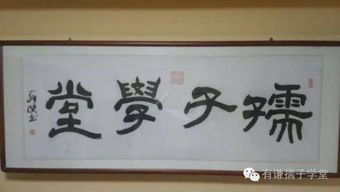 孺子學堂
有谦孺子学堂